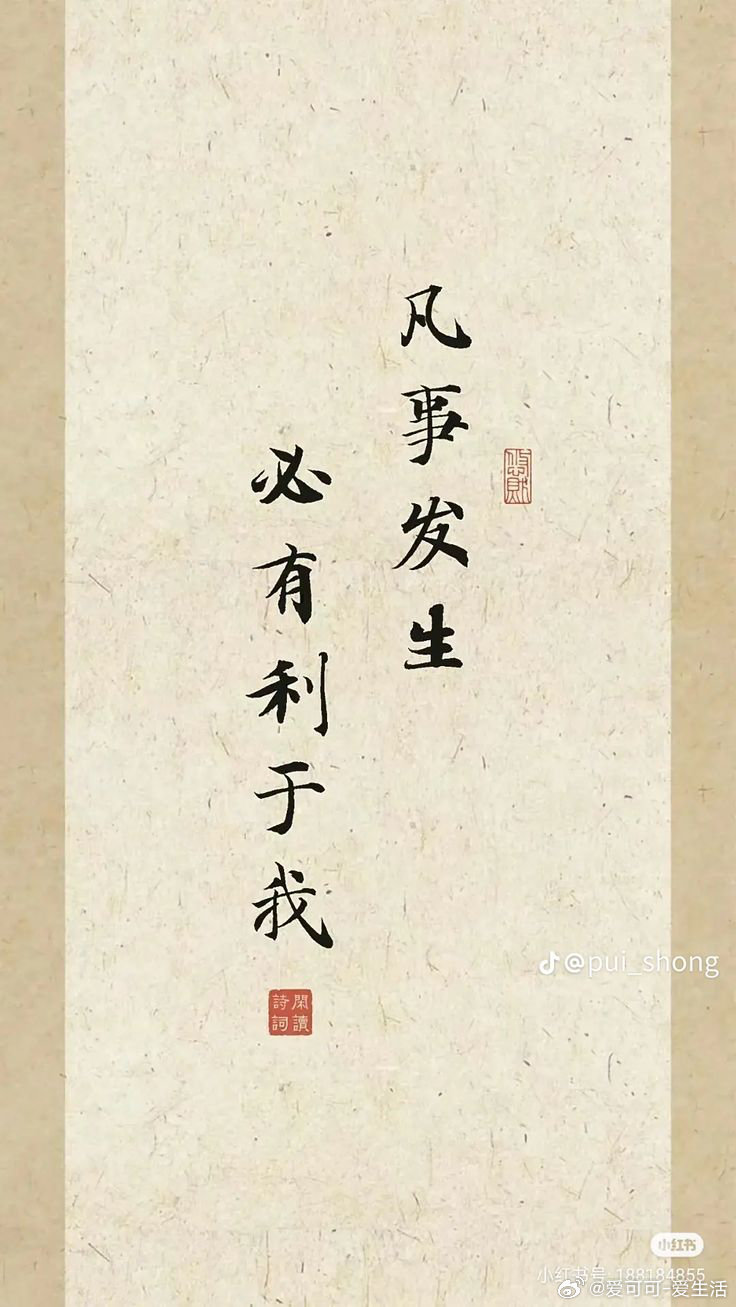 凡事发生
必有利于我
閑讀
詩詞
@pui_shong
小红书
小红书号 188184855
@爱可可-爱生活